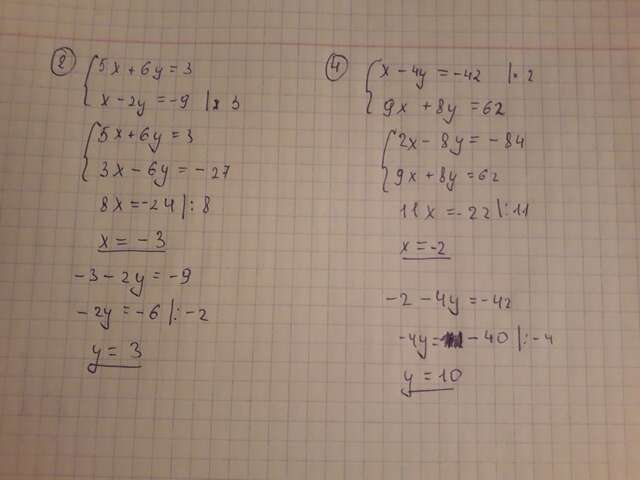 2) { 5x + 6y = 3
x - 2y = -9 | x 3
{ 5x + 6y = 3
3x - 6y = -27
8x = -24 | : 8
x = -3
-3 - 2y = -9
-2y = -6 | : -2
y = 3
4) { x - 4y = -42 | · 2
9x + 8y = 62
{ 2x - 8y = -84
9x + 8y = 62
11x = -22 | : 11
x = -2
-2 - 4y = -42
-4y = -40 | : -4
y = 10